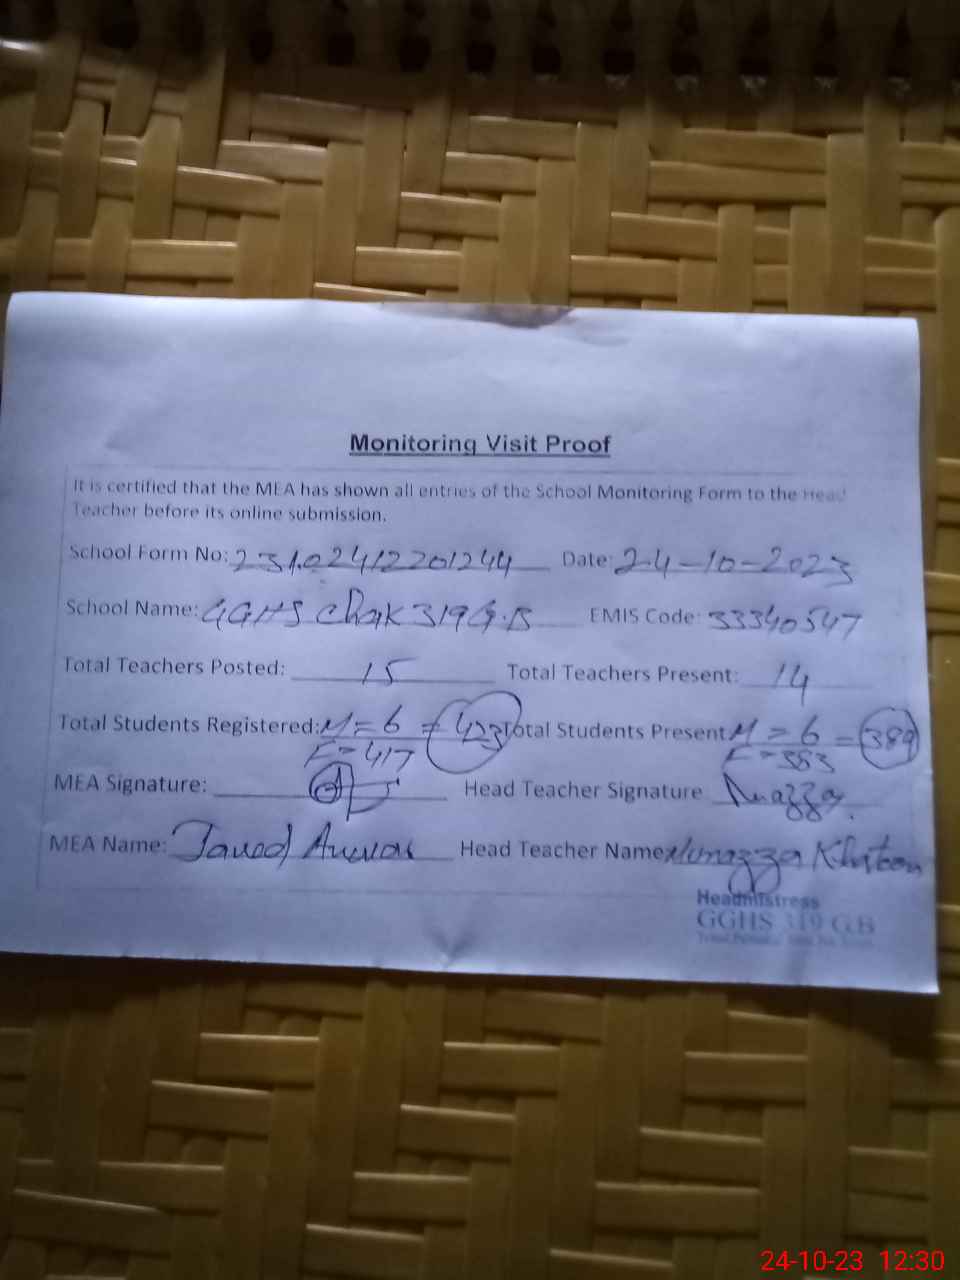 Monitoring Visit Proof
It is certified that the MEA has shown all entries of the School Monitoring Form to the Head
Teacher before its online submission.
School Form No: 231.02412201244 Date: 24-10-2023
School Name: GGHS Chak 319 G.B EMIS Code: 33340547
Total Teachers Posted: 15 Total Teachers Present: 14
Total Students Registered: M = 6 = 423 Total Students Present M = 6 = 389
F = 417 F = 383
MEA Signature: Head Teacher Signature
MEA Name: Javed Anwar Head Teacher Name Munazza Khatoon
Headmistress
GGHS 319 G.B
24-10-23 12:30